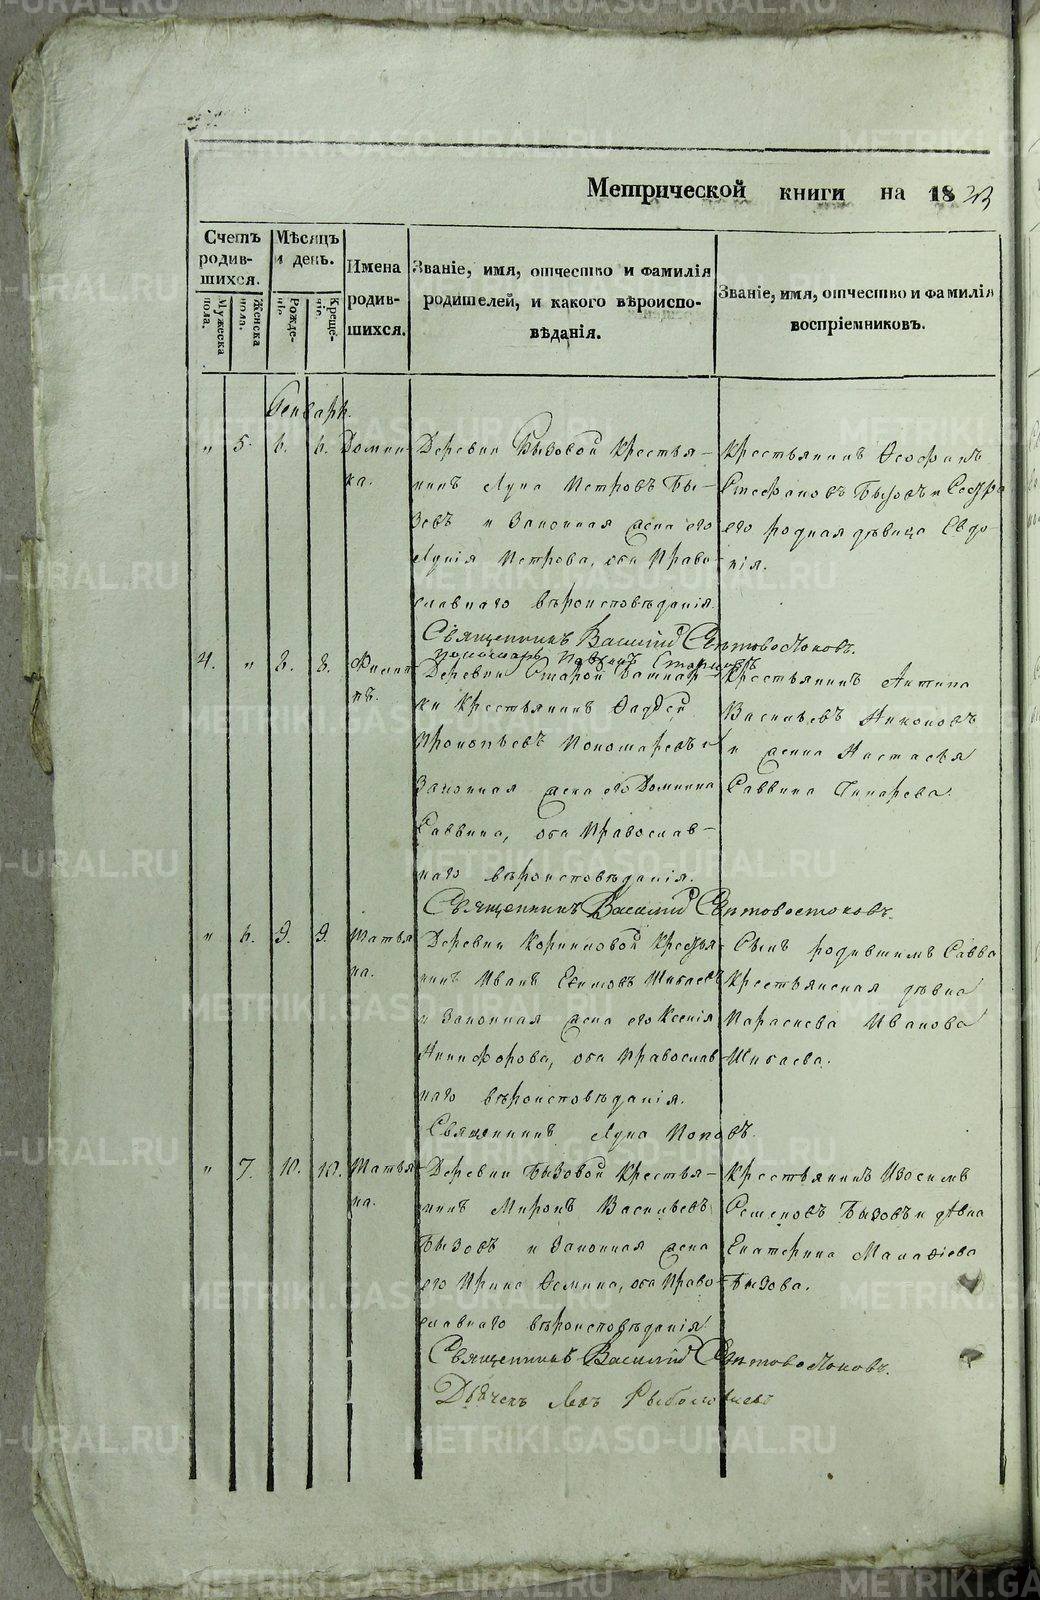 Метрической книги на 18
Счетъ родив-шихся.
Мужеска пола.
Женска пола.
Мѣсяцъ и день.
Рожде-ніе
Креще-ніе
Имена родив-шихся.
Званіе, имя, отчество и фамилія
родителей, и какого вѣроиспо-
вѣданія.
Званіе, имя, отчество и фамилія
воспріемниковъ.
Генварь.
" 5. 6. 6. Домни-
ка.
Деревни Бызовой Крестья-
нинъ Лука Петровъ Бы-
зовъ и Законная жена его
Петрова, оба Право-
славнаго вѣроисповѣданія.
Священникъ Василій Свѣтовостоковъ.
Пономарь
Крестьянинъ Феофанъ
Стефановъ Бызовъ и Сестра
его родная дѣвица Евдо-
кія.
4. " 8. 8. Филип-
пъ.
Деревни Старой Башкар-
ки Крестьянинъ Фаддей
Прокопьевъ Пономаревъ и
Законная жена его Домнина
Саввина, оба Православ-
наго вѣроисповѣданія.
Священникъ Василій Свѣтовостоковъ.
Крестьянинъ Антипа
Васильевъ Никоновъ
и жена Настасья
Саввина
" 6. 9. 9. Татья-
на.
Деревни Корниловой Крестья-
нинъ Иванъ Екимовъ Шигаевъ
и Законная жена его Ксенія
Никифорова, оба Православ-
наго вѣроисповѣданія.
Священникъ Лука Поповъ.
Сынъ родившимъ Савва
Крестьянская дѣвка
Параскева Иванова
Шигаева.
" 7. 10. 10. Татья-
на.
Деревни Бызовой Крестья-
нинъ Миронъ Васильевъ
Бызовъ и Законная жена
его Ирина Фомина, оба Право-
славнаго вѣроисповѣданія
Священникъ Василій Свѣтовостоковъ.
Дьячекъ Левъ
Крестьянинъ Изосимъ
Семеновъ Бызовъ и дѣвка
Екатерина Малафіева
Бызова.
METRIKI.GASO-URAL.RU